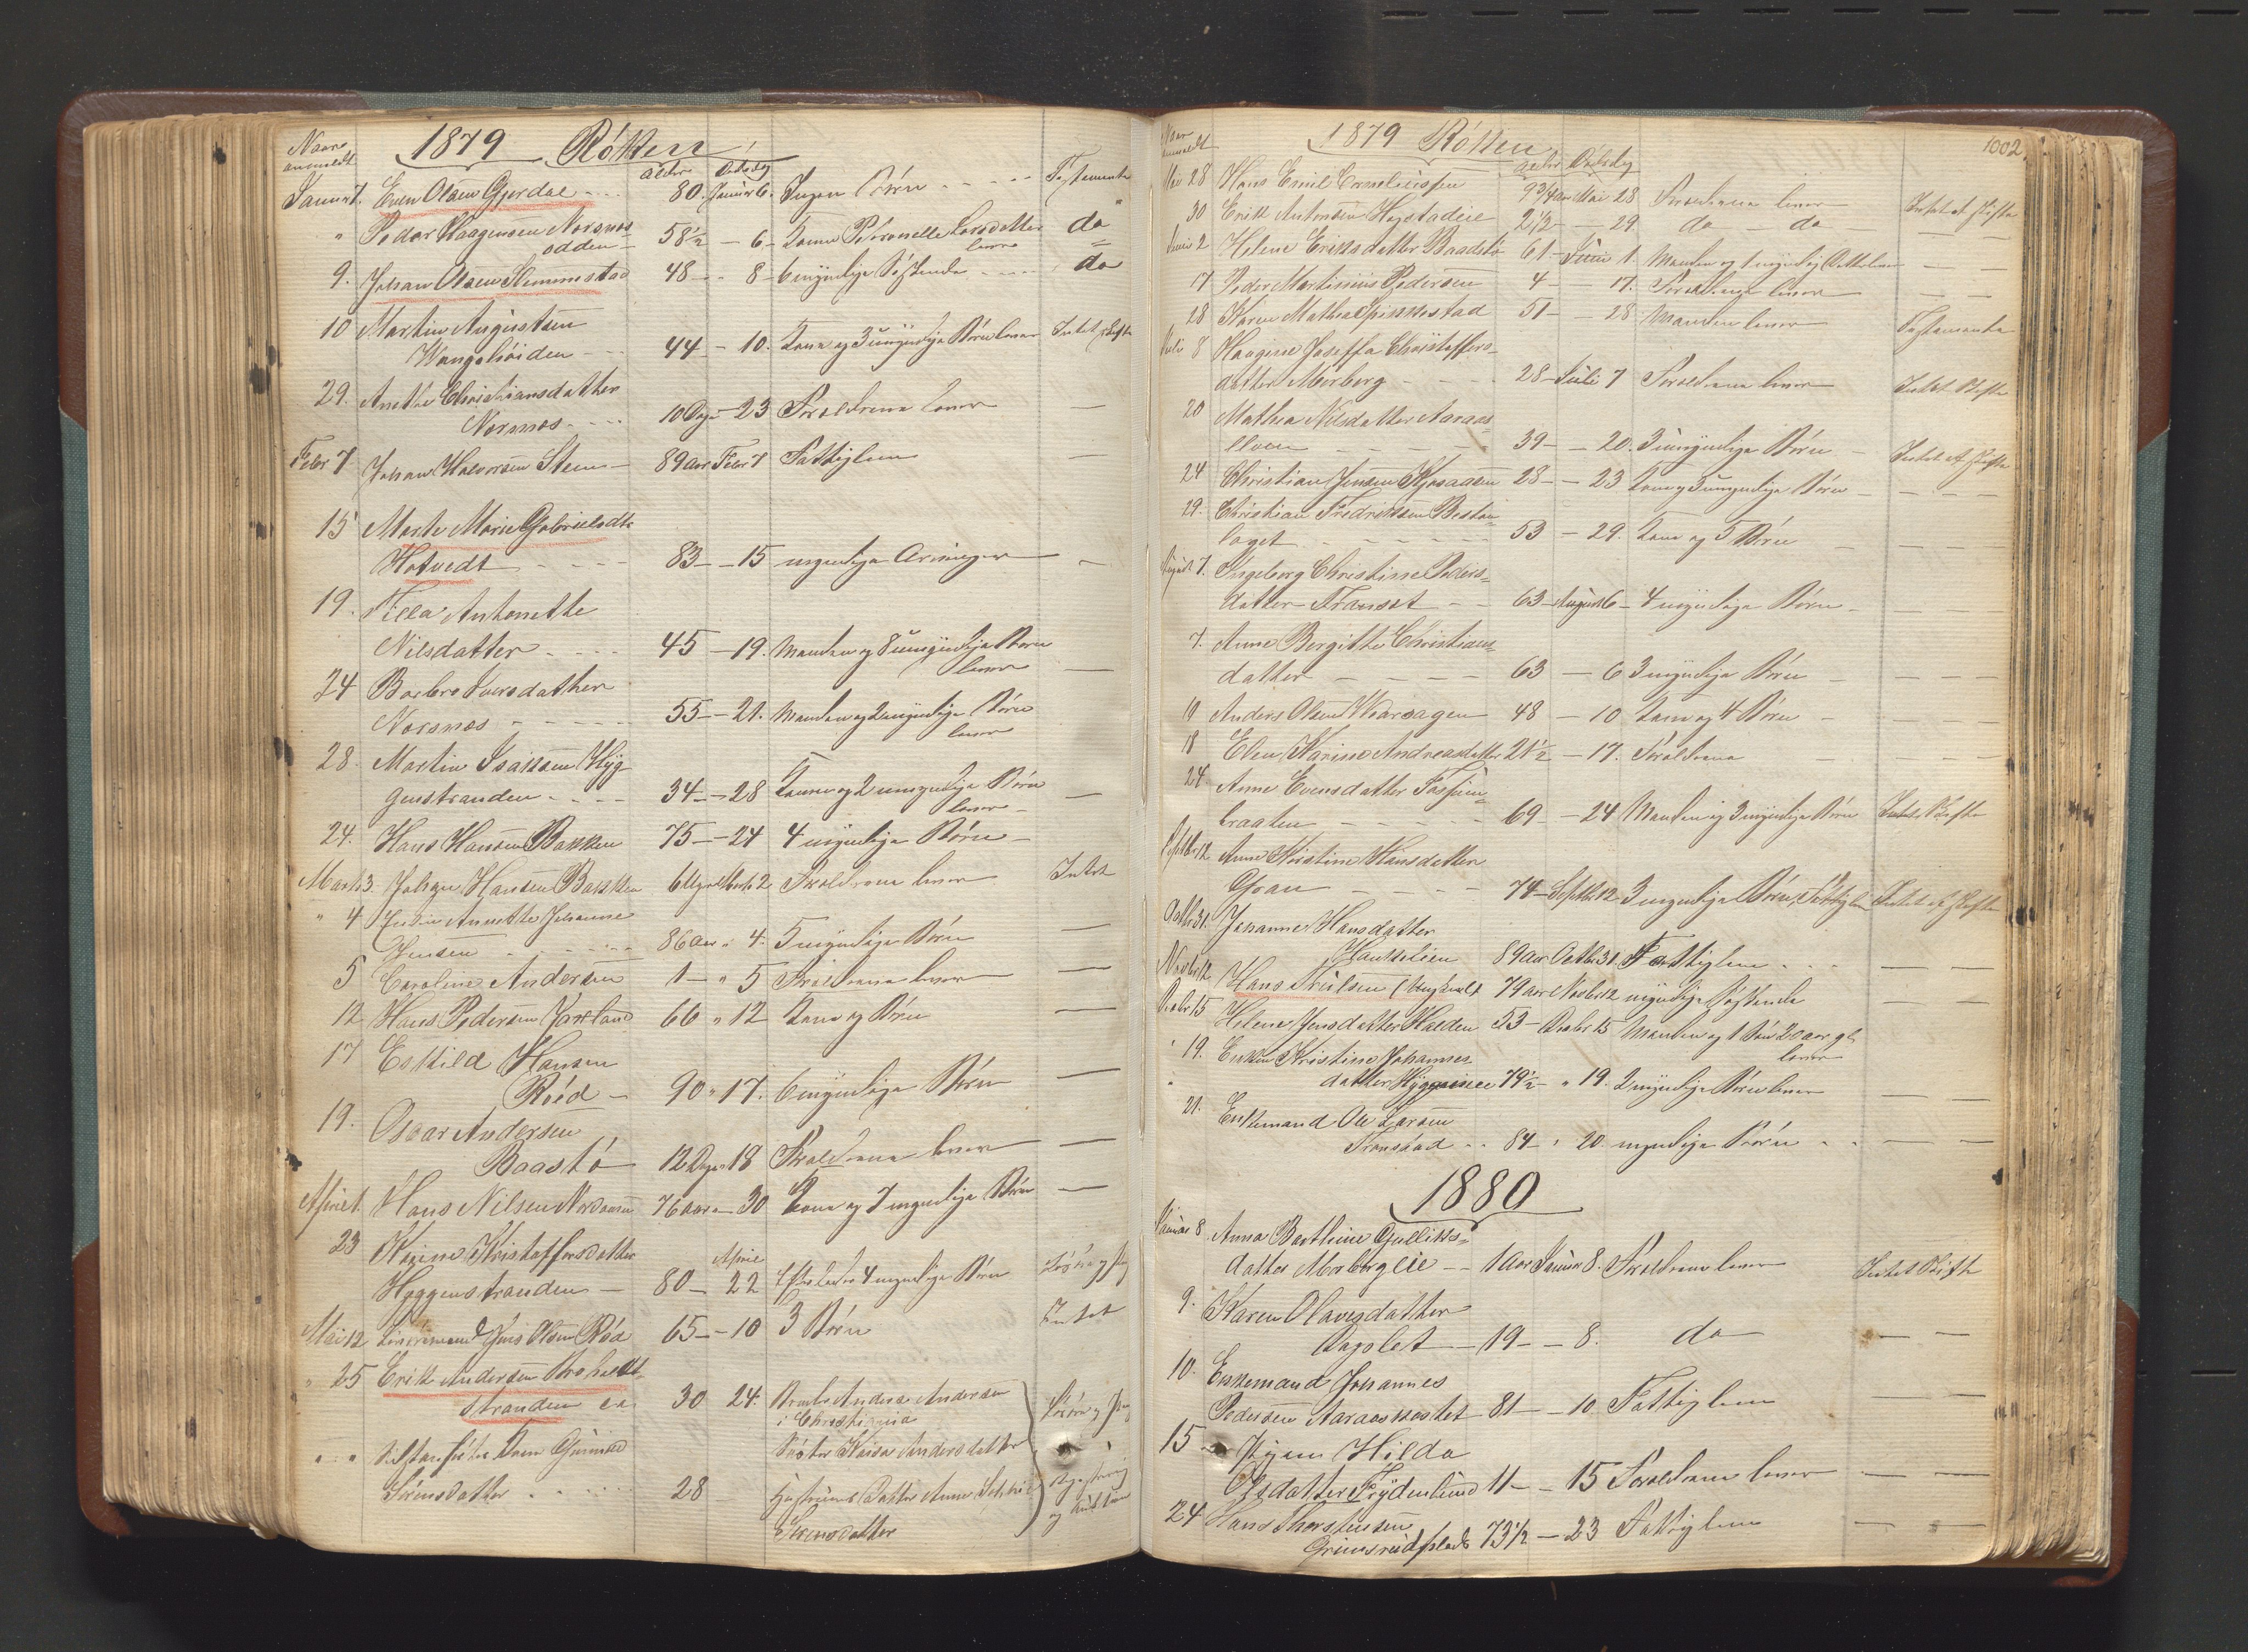 Naar
anmeldt
1879 Røken
Alder Dødsdag
Januar 7. Even Olsen Gjerdal 80. Januar 6. Ingen Børn Testamente
" Peder Haagensen Narsnæs
odden 58½ - 6 - Konen Petronelle Larsdatter do
lever
9. Johan Olsen Slemmestad 48 - 8 - 6 myndige Søskende do
10 Martin Augustsen
Wangshøiden 44 - 10. Kone og 3 umyndige Børn lever Intet Skifte
29. Anethe Christiansdatter
Narsnæs 10 Dage - 23 Forældrene lever —
Febr 7 Johan Halvorsen Steen 89 aar Febr 7 Fattiglem —
15 Marte Marie Gabrielsdtr
Hotvedt 83 - 15 myndige Arvinger —
19. Antonette
Nilsdatter 45 - 19. Manden og 8 umyndige Børn
lever —
24 Barbro Iversdatter
Narsnæs 55 - 21. Manden og 2 myndige Børn
lever
28 Martin Isaksen Hyg
genstranden 34 - 28 Konen og 2 umyndige Børn
lever —
24. Hans Hansen Bakken 75 - 24 4 myndige Børn —
Marts 3. Johan Hansen Bakken 6 Uger Marts 2 Forældrene lever Intet
" 4 Enken Annette Johanne
Jensen 86 aar " 4. 5 myndige Børn —
5 Caroline Andersen 1 - " 5 Forældrene lever —
12 Hans Pedersen Jarland 66 " 12 Kone og Børn —
17 Eskild Hansen
Røed 90 " 17. 6 myndige Børn —
19. Oscar Andersen
Baastø 12 Dage 18 Forældrene lever —
April 1. Hans Nilsen 76 aar - 30 Kone og 7 myndige Børn —
23 Karine Kristoffersdatter April
Hyggenstranden 80 - 22 Efterlader 4 myndige Børn
Mai 12 Jens Olsen Rød 65 - 10 3 Børn Intet
" 25 Erik Andersen
stranden 30 24. Broder Andreas Andersen
i Christiania
" " Kone
Sørensdatter 28 Datter Anne
Sørensdatter
1002
Naar
anmeldt
1879 Røken
Alder Dødsdag
Mai 28 Hans Emil Corneliussen 9¾ aar Mai 28 Forældrene lever Intet at skifte
30 Erik Antonsen Hogstadeie 2½ - 29 do — do — —
Juni 2 Helene Eriksdatter Baadstø 61 - Juni 1 Manden og 1 myndig Datter lever — —
17 Peder Martinius Pedersen 4 - - 17. Forældrene lever — —
28 Karen Mathea Spikkestad 51 - - 28 Manden lever Testamente
Juli 8 Haagine Josefa Christoffers-
datter Mørberg 28 - Juli 7 Forældrene lever Intet Skifte
20 Mathea Nilsdatter Aaraas-
lløen 39 - - 20. 3 umyndige Børn Intet at skifte
24 Christian Jensen Kjosaasen 28 - - 23 Kone og 3 umyndige Børn — —
29. Christian Fredriksen
53 - 29. Kone og 5 Børn — —
August 7. Ingeborg Christine Peders-
datter Franset 63 - August 6 - 4 myndige Børn — —
7. Anne Bergitte Christians-
datter 63 - 6 3 myndige Børn — —
10 Anders Olsen 48 - 10 Kone og 4 Børn — —
18 Elen Karine Andreasdatter 21½ - 17. Forældrene — —
24 Anne Evensdatter
braaten 69 - 24 Manden og 3 myndige Børn Intet Skifte
Septbr 12 Anne Kirstine Hansdatter
Gran 74 - Septbr 12 3 myndige Børn, Fattiglem Intet at skifte
Octbr 31. Johanne Hansdatter
89 aar Octbr 31. Fattiglem — —
Novbr 12 Hans Truelsen 79 aar Novbr 12 myndige Søskende — —
Decbr 15 Helene Jensdatter Halden 53 - Decbr 15 Manden og 1 Søn 20 aar gl.
lever
" 19. Enken Kristine Johannes-
datter 79½ - " 19. 2 myndige Børn lever — —
" 21. Enkemand Ole Larsen
84 " 20. myndige Børn — —
1880
Januar 8. Anna Bartheine Gulliks-
datter Mørbergeie 1 aar Januar 8. Forældrene lever Intet Skifte
9. Karen Olavesdatter
Dagslet 19 - - 8. do — —
10. Enkemand Johannes
Pedersen Aaraaskastet 81 - - 10 Fattiglem — —
15 Hilda
Olsdatter Frydenlund 11 - - 15 Forældrene lever — —
24 Hans Thorstensen
Grimsrudplads 73½ - 23 Fattiglem — —